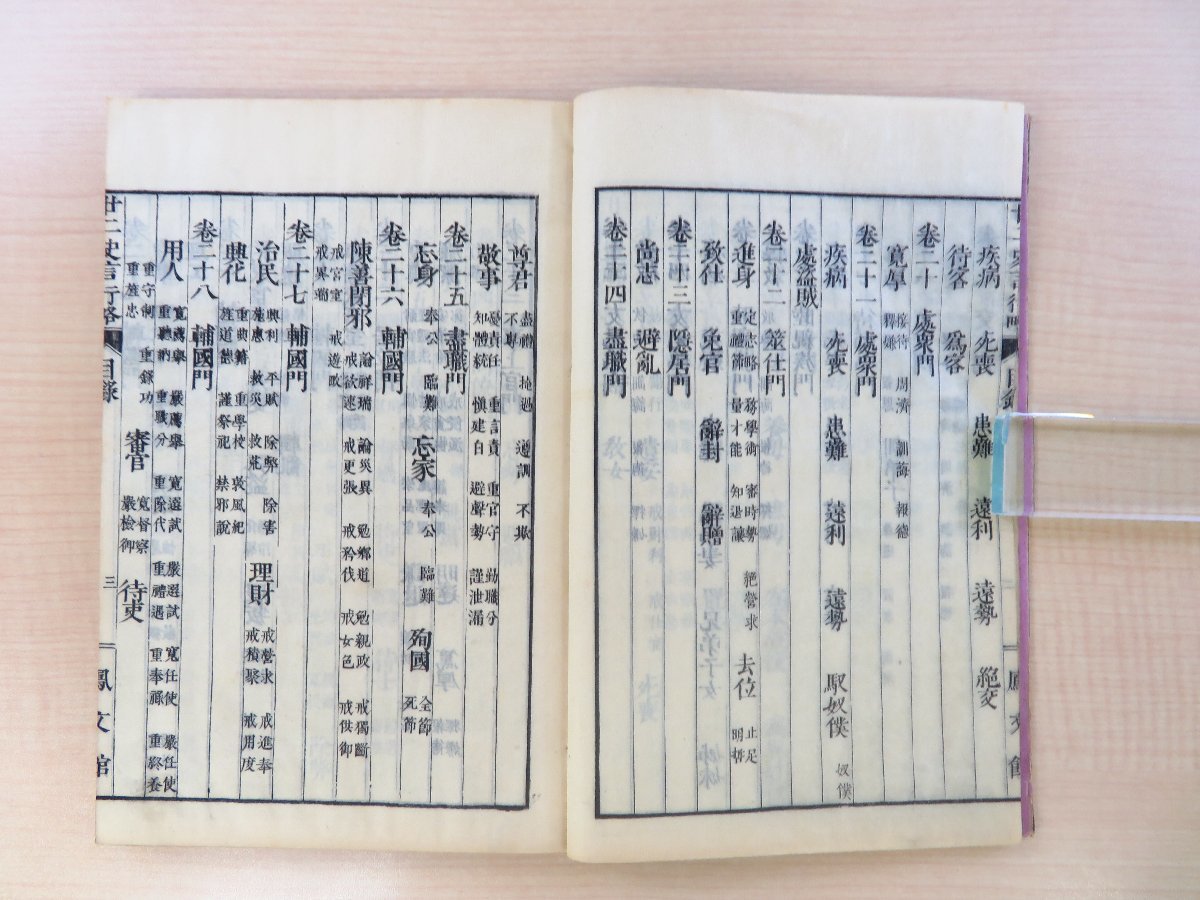 疾病 先喪 患難 遠利 遠勢 絕交
待客 爲客
卷二十 處衆門
寬厚 接待 周濟 訓誨 報德
釋嫌
卷二十一 處衆門
疾病 先喪 患難 遠利 遠勢 馭奴僕 奴僕
處盜賊
卷二十二 筮仕門
進身 定志略 務學術 審時勢 絕營求 去位 止足
重禮節 量才能 知退讓 明哲
致仕 免官 辭封 辭贈
卷二十三 隱居門
尚志 避亂
卷二十四 盡職門
尊君 盡禮 掩過 遵訓 不欺
不專
敬事 憂責任 重言責 重官守 勤職分
知體統 愼建白 避聲勢 謹泄漏
卷二十五 盡職門
忘身 奉公 臨難 忘家 奉公 臨難 殉國 全節
死節
卷二十六 輔國門
陳善閉邪 論祥瑞 論災異 勉鄉道 勉親政 戒獨斷
戒宦室 戒遊畋 戒欲速 戒更張 戒矜伐 戒女色 戒供御
戒異端
卷二十七 輔國門
治民 興利 平賦 除弊 除害 理財 戒營求 戒進奉
施惠 救災 救荒 戒積聚 戒用度
興化 重典籍 重學校 裒風紀
旌道德 謹祭祀 禁邪說
卷二十八 輔國門
用人 寬薦舉 嚴薦舉 寬選試 嚴選試 寬任使 嚴任使
重聽納 重職分 重除代 重禮遇 重奉祿 重終養
重守制 重錄功 審官 寬督察 待吏
重旌忠 嚴檢御
廿二史言行略 目錄 三 鳳文館